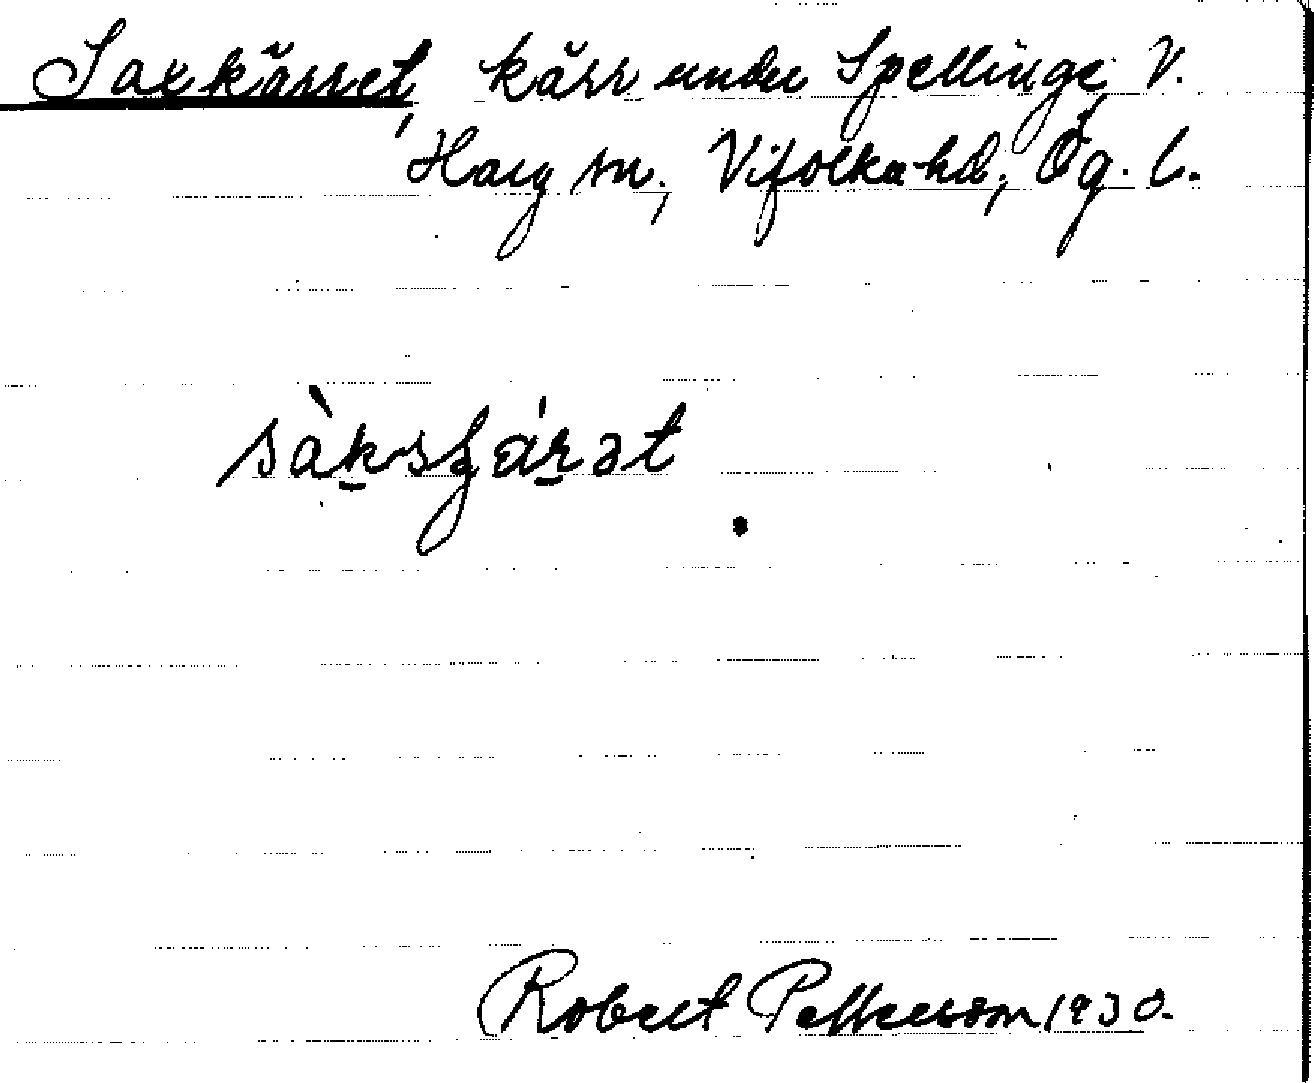 Saxkärret, kärr under Spellinge, V.
Harg sn., Vifolka hd., Ög. l.
sàksʂárət
Robert Pettersson 1930.